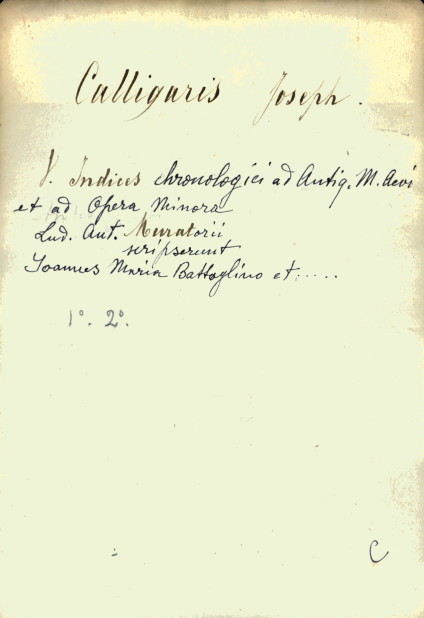 Calligaris Joseph.
V. Indices chronologici ad Antiq. M. Aevi
et ad Opera Minora
Lud. Ant. Muratorii
scripserunt
Joannes Maria Battaglino et.....
1º. 2º.
C